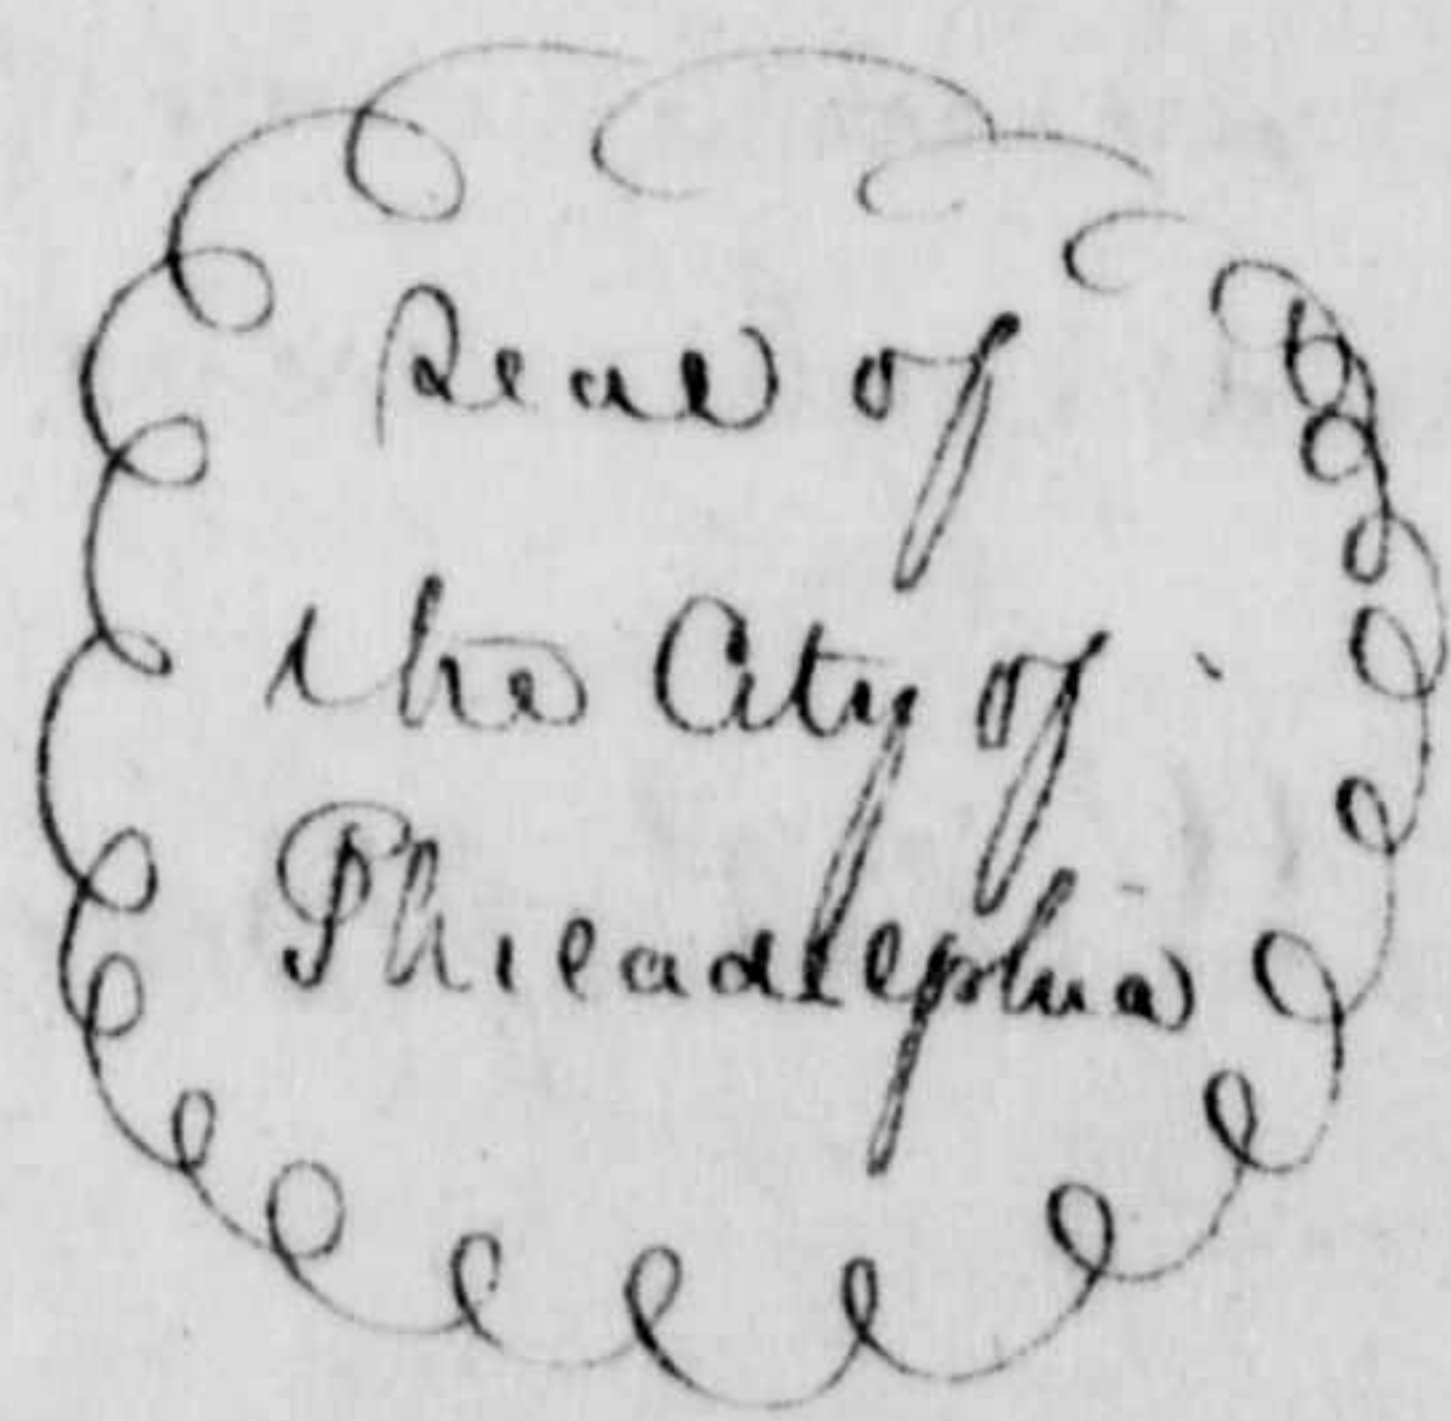 Seal of
the City of
Philadelphia